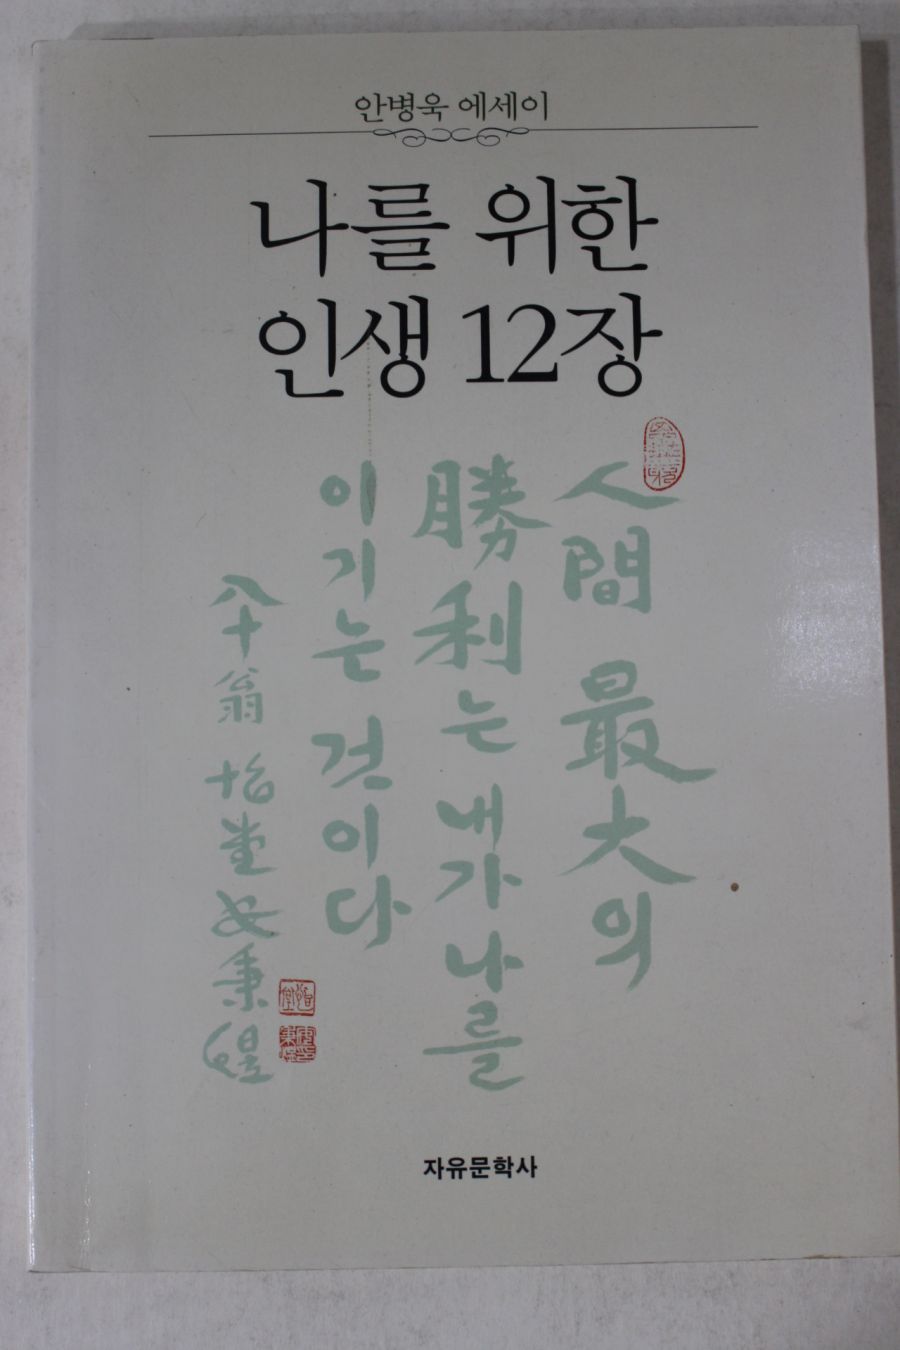 안병욱 에세이
나를 위한
인생 12장
人間 最大의
勝利는 내가 나를
이기는 것이다
八十翁 怡堂 安秉煜
자유문학사